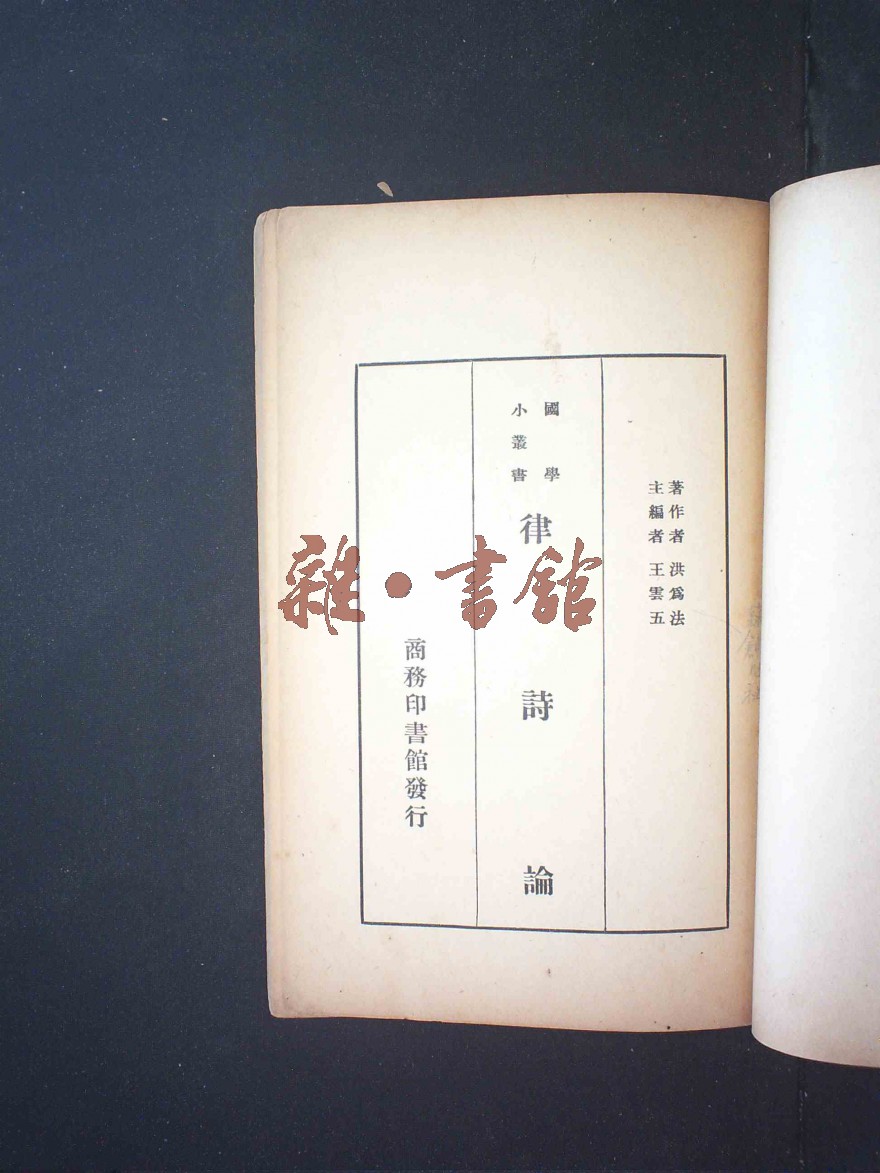 著作者 洪爲法
主編者 王雲五
國學
小叢書
律詩論
商務印書館發行
雜·書館